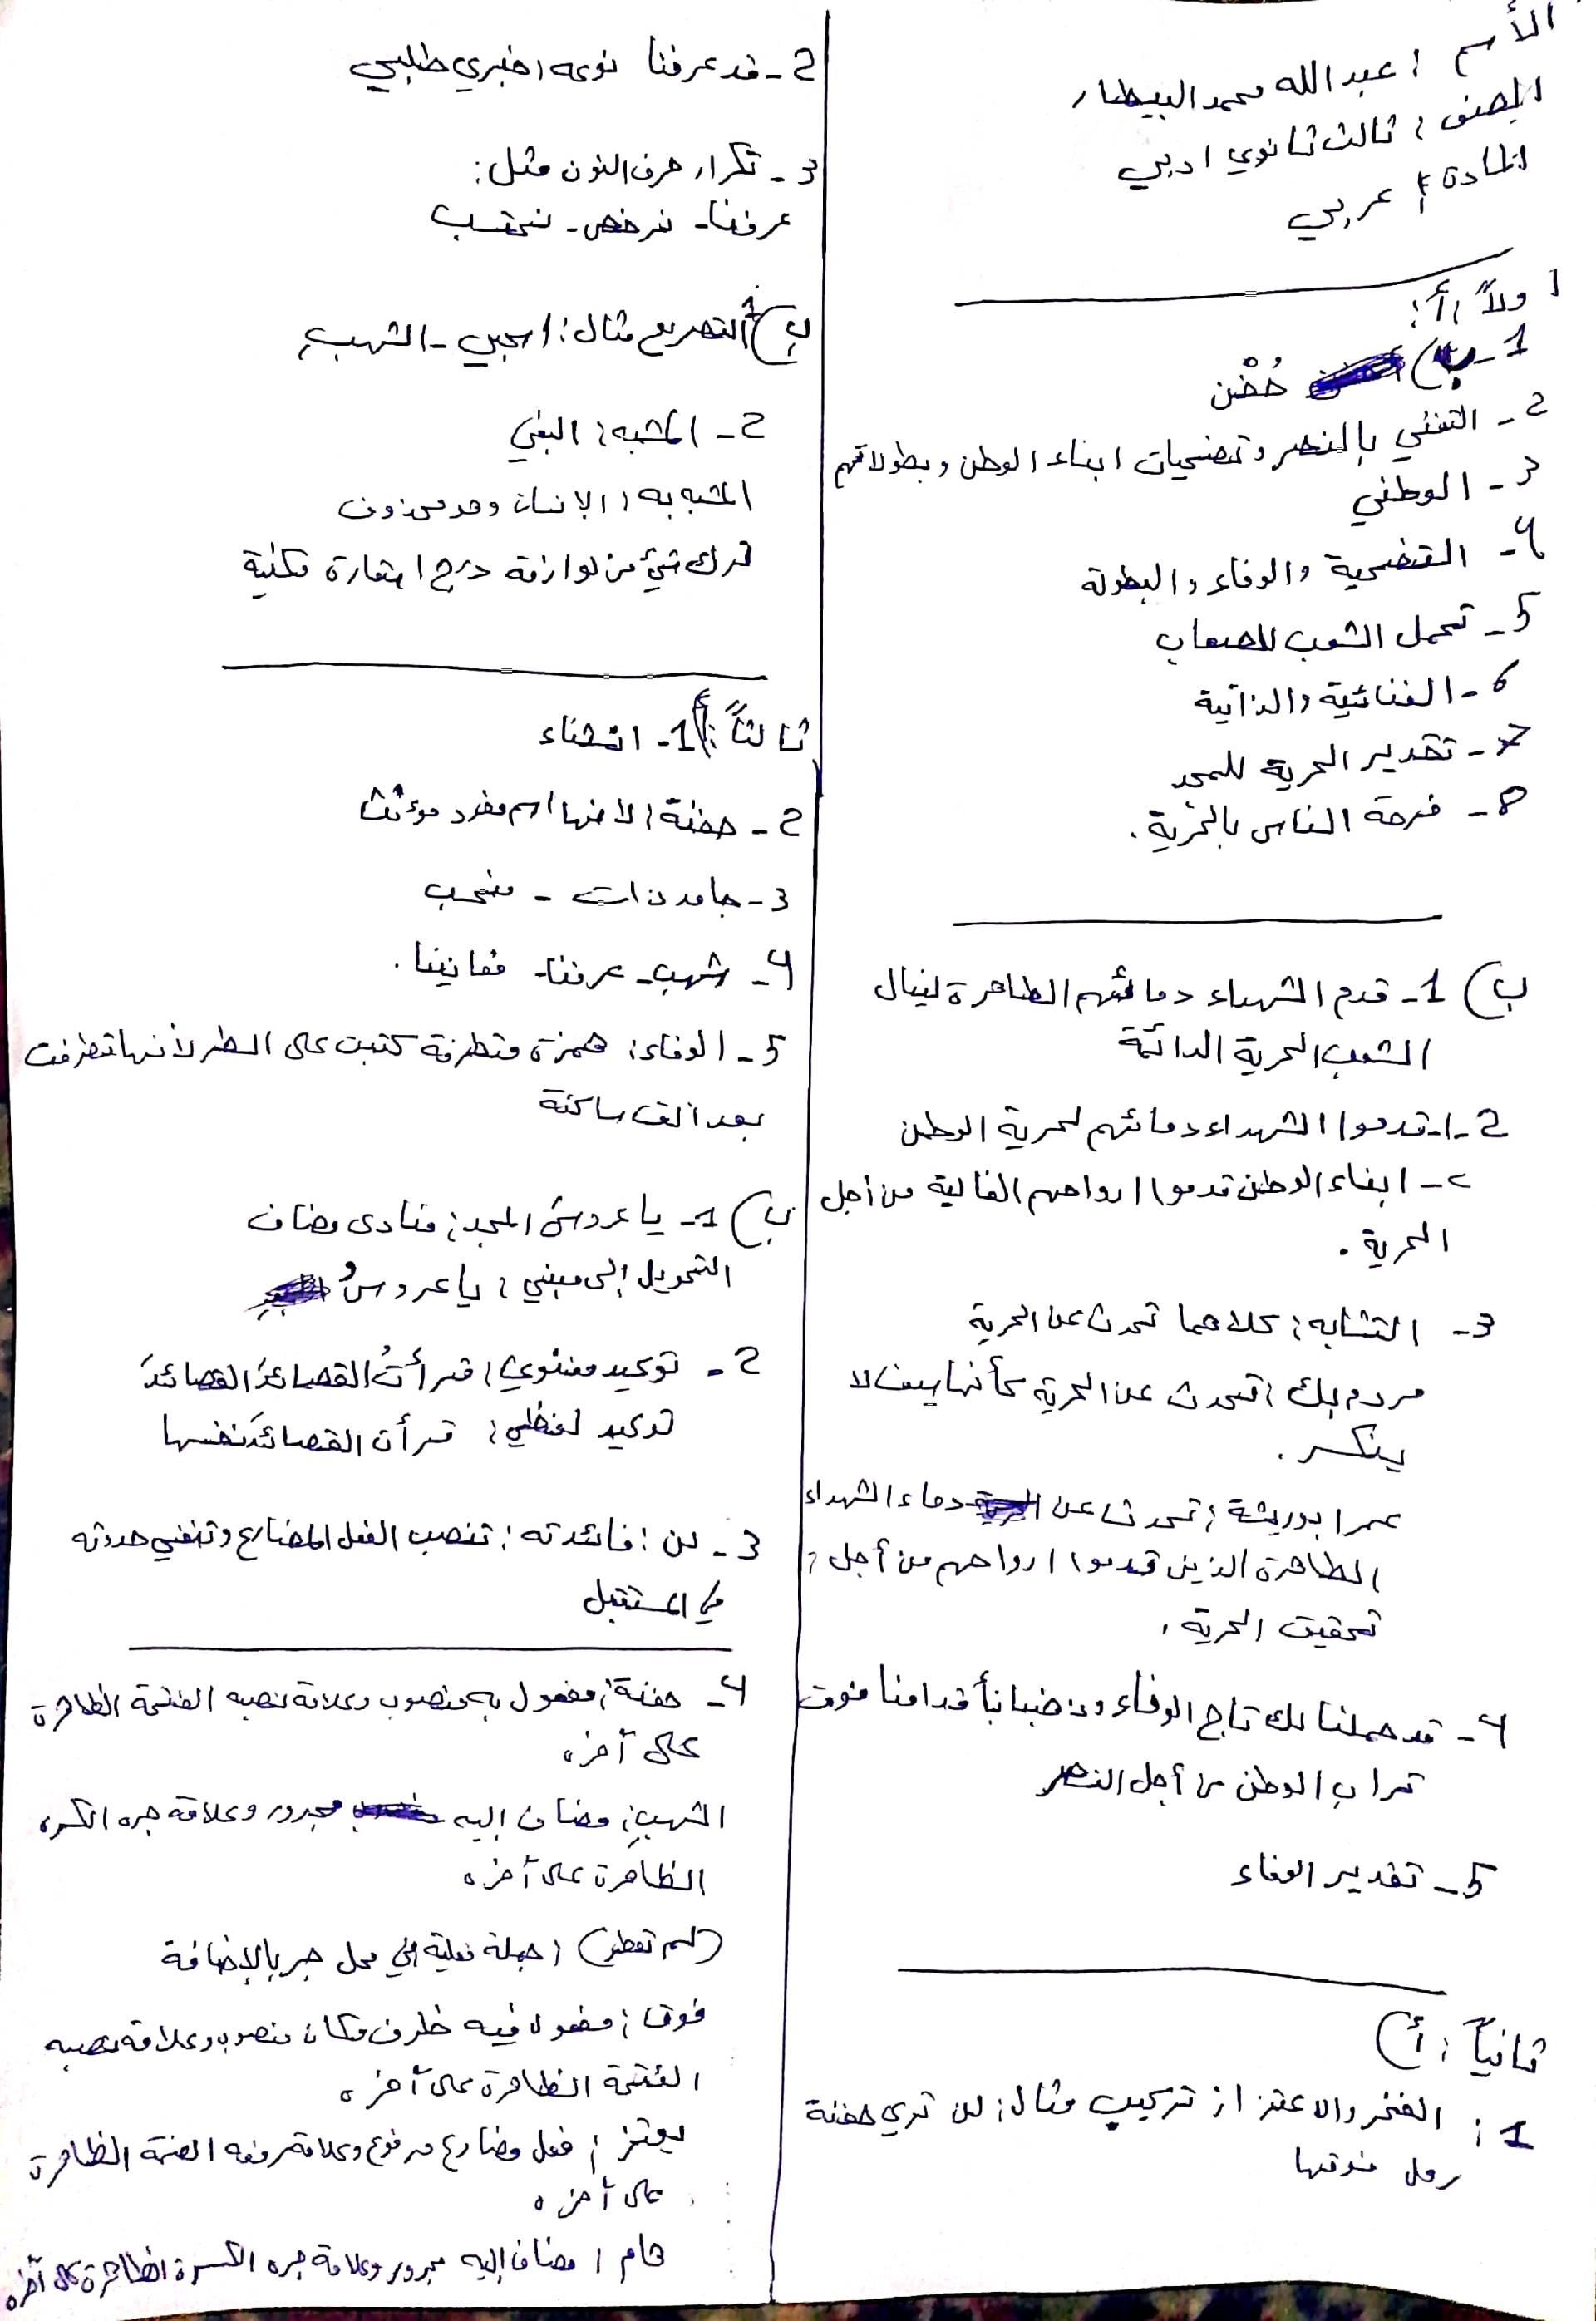 الأسم : عبد الله محمد البيطار
الصف : ثالث ثانوي ادبي
المادة : عربي
اولاً : أ :
1- ب) حُضْن
2- التغني بالنصر وتضحيات ابناء الوطن وبطولاتهم
3- الوطني
4- التضحية والوفاء والبطولة
5- تحمل الشعب للصعاب
6- الغنائية والذاتية
7- تقدير الحرية للمجد
8- فرحة الناس بالحرية .
ب) 1- قدم الشهداء دمائهم الطاهرة لينال
الشعب الحرية الدائمة
2-1- قدموا الشهداء دمائهم لحرية الوطن
2- ابناء الوطن قدموا ارواحهم الغالية من أجل
الحرية .
3- التشابه : كلاهما تحدث عن الحرية
مردم بك : تحدث عن الحرية كأنها سيف لا
ينكسر .
عمر ابو ريشة : تحدث عن دماء الشهداء
الطاهرة الذين قدموا ارواحهم من أجل :
تحقيق الحرية .
4- قد حملنا لك تاج الوفاء و بأقدامنا فوق
تراب الوطن من أجل النصر
5- تقدير الوفاء
ثانياً : أ)
1 : الفخر والاعتزاز تركيب مثال : لن تري حفنة
رمل فوقها
2- قد عرفنا نوعه : خبري طلبي
3- تكرار حرف النون مثل :
عرفنا - نرخص - نحتسب
ب) 1- التصريع مثال : اسحبي - الشهب
2- المشبه : البغي
المشبه به : الإنسان وهو محذوف
ترك شيء من لوازمه صرح استعارة مكنية
ثالثاً : أ) 1- انشاء
2- حفنة : لأنها اسم مفرد مؤنث
3- جامد ذات - سحب
4- شهب - عرفنا - مغانينا .
5- الوفاء : همزة متطرفة كتبت على السطر لأنها تطرفت
بعد ألف ساكنة
ب) 1- يا عروس المجد : منادى مضاف
التحويل إلى مبني : يا عروسُ
2- توكيد معنوي : قرأتُ القصائدَ القصائدَ
توكيد لفظي : قرأت القصائدَ نفسها
3- لن : فائدته : تنصب الفعل المضارع وتنفي حدوثه
في المستقبل
4- حفنة : مفعول به منصوب وعلامة نصبه الفتحة الظاهرة
على آخره
الشهبِ : مضاف إليه مجرور وعلامة جره الكسرة
الظاهرة على آخره
(لم تعطر) : جملة فعلية في محل جر بالإضافة
فوق : مفعول فيه ظرف مكان منصوب وعلامة نصبه
الفتحة الظاهرة على آخره
يعتز : فعل مضارع مرفوع وعلامة رفعه الضمة الظاهرة
على آخره
هام : مضاف إليه مجرور وعلامة جره الكسرة الظاهرة على آخره